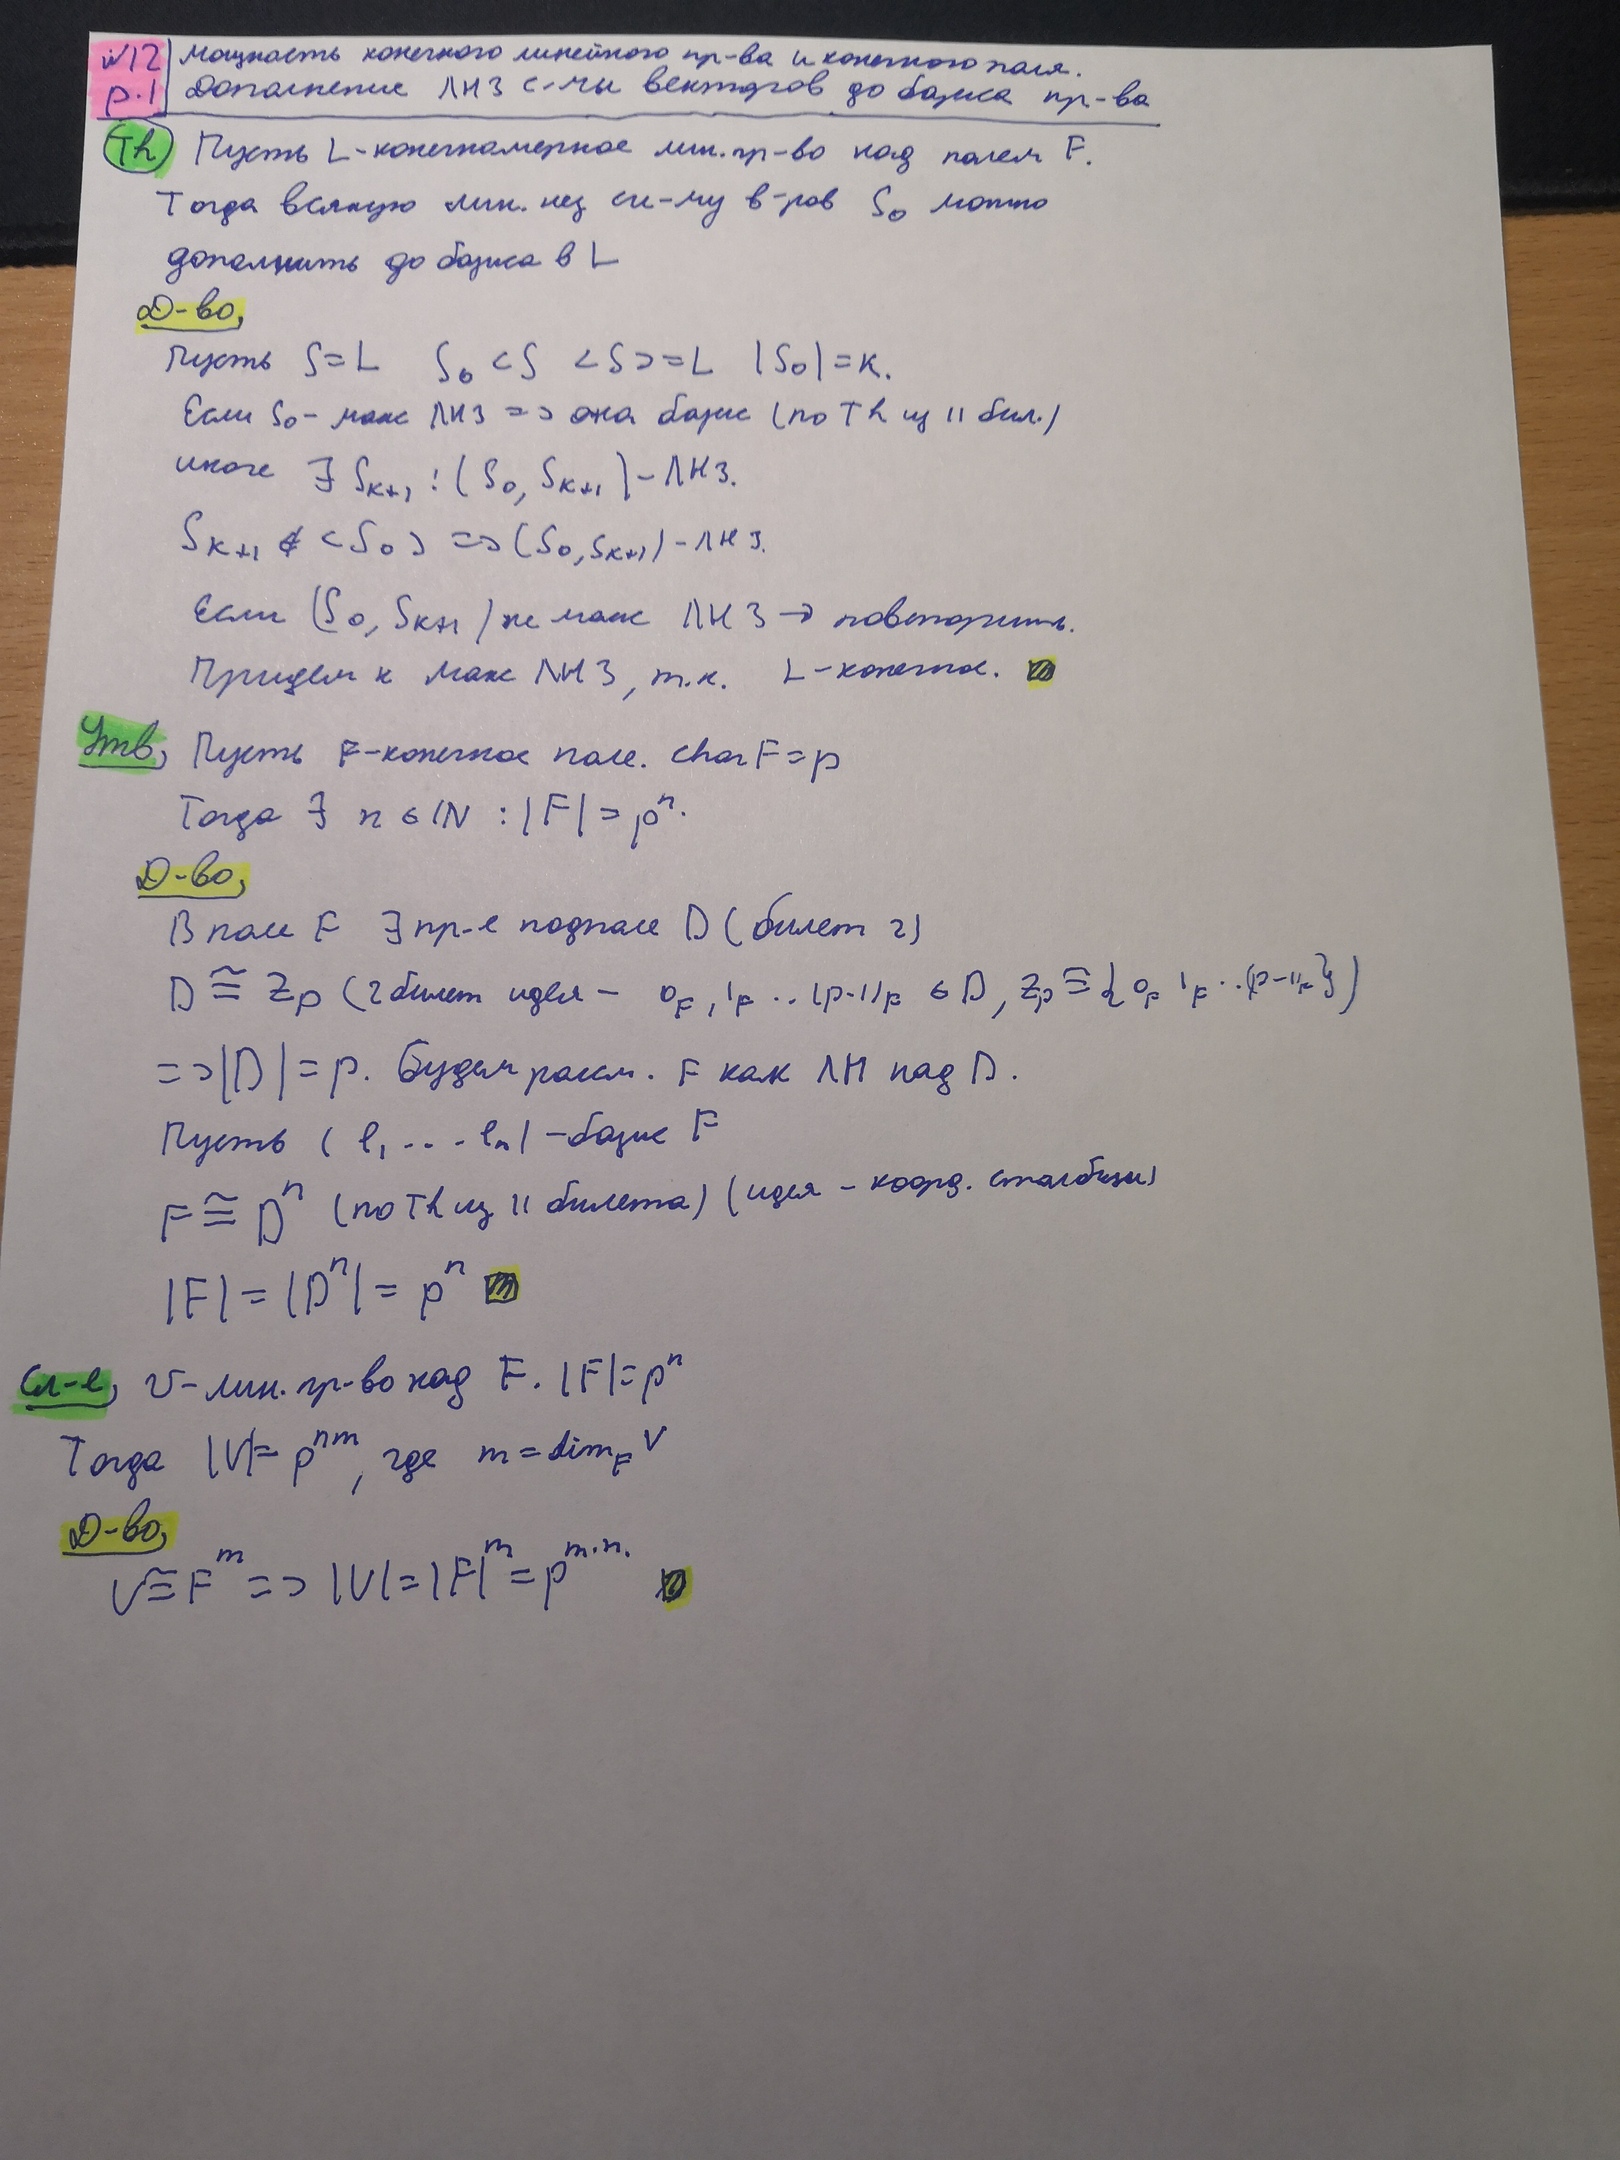 №12 Мощность конечного линейного пр-ва и конечного поля.
р.1 Дополнение ЛНЗ с-мы векторов до базиса пр-ва
Th Пусть L-конечномерное лин.пр-во над полем F.
Тогда всякую лин. нез си-му в-ров S₀ можно
дополнить до базиса в L
Д-во,
Пусть S=L S₀<S <S>=L |S₀|=k.
Если S₀- макс ЛНЗ => она базис (по Th из 11 бил.)
иначе ∃ Sₖ₊₁ : (S₀, Sₖ₊₁)-ЛНЗ.
Sₖ₊₁ ∉ <S₀> => (S₀, Sₖ₊₁)-ЛНЗ.
Если (S₀, Sₖ₊₁) не макс ЛНЗ → повторить.
Придем к макс ЛНЗ, т.к. L-конечное.
Утв, Пусть F-конечное поле. char F=p
Тогда ∃ n ∈ ℕ : |F| = pⁿ.
Д-во,
В поле F ∃ пр-е подполе D (билет 2)
D ≅ Zp (2 билет идея - 0_F, 1_F .. (p-1)_F ∈ D, Zp ≅ {0_F 1_F ..(p-1)_F})
=> |D| = p. Будем рассм. F как ЛП над D.
Пусть (l₁ ... lₙ) -базис F
F ≅ Dⁿ (по Th из 11 билета) (идея - коорд. столбцы)
|F| = |Dⁿ| = pⁿ
Сл-е, V-лин.пр-во над F. |F|=pⁿ
Тогда |V|= pⁿᵐ, где m = dim_F V
Д-во,
V ≅ Fᵐ => |V|=|F|ᵐ = p^m·n.